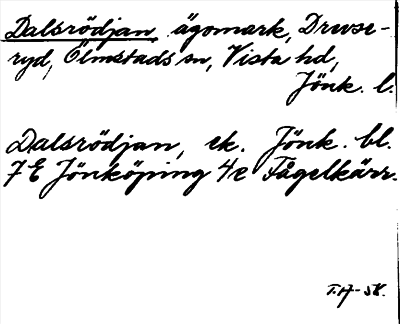 Dalsrödjan, ägomark, Druse-
ryd, Ölmstads sn, Vista hd,
Jönk. l.
Dalsrödjan, ek. Jönk. bl.
7E Jönköping 4e Fågelkärr.